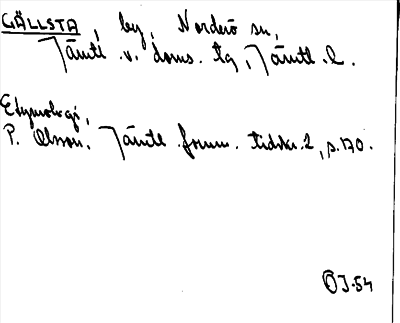 GÄLLSTA, by, Norderö sn,
Jämtl. v. doms. tg, Jämtl. l.
Etymologi,
P. Olsson. Jämtl. fornm. tidskr. 2, s. 170.
ÖJ-54